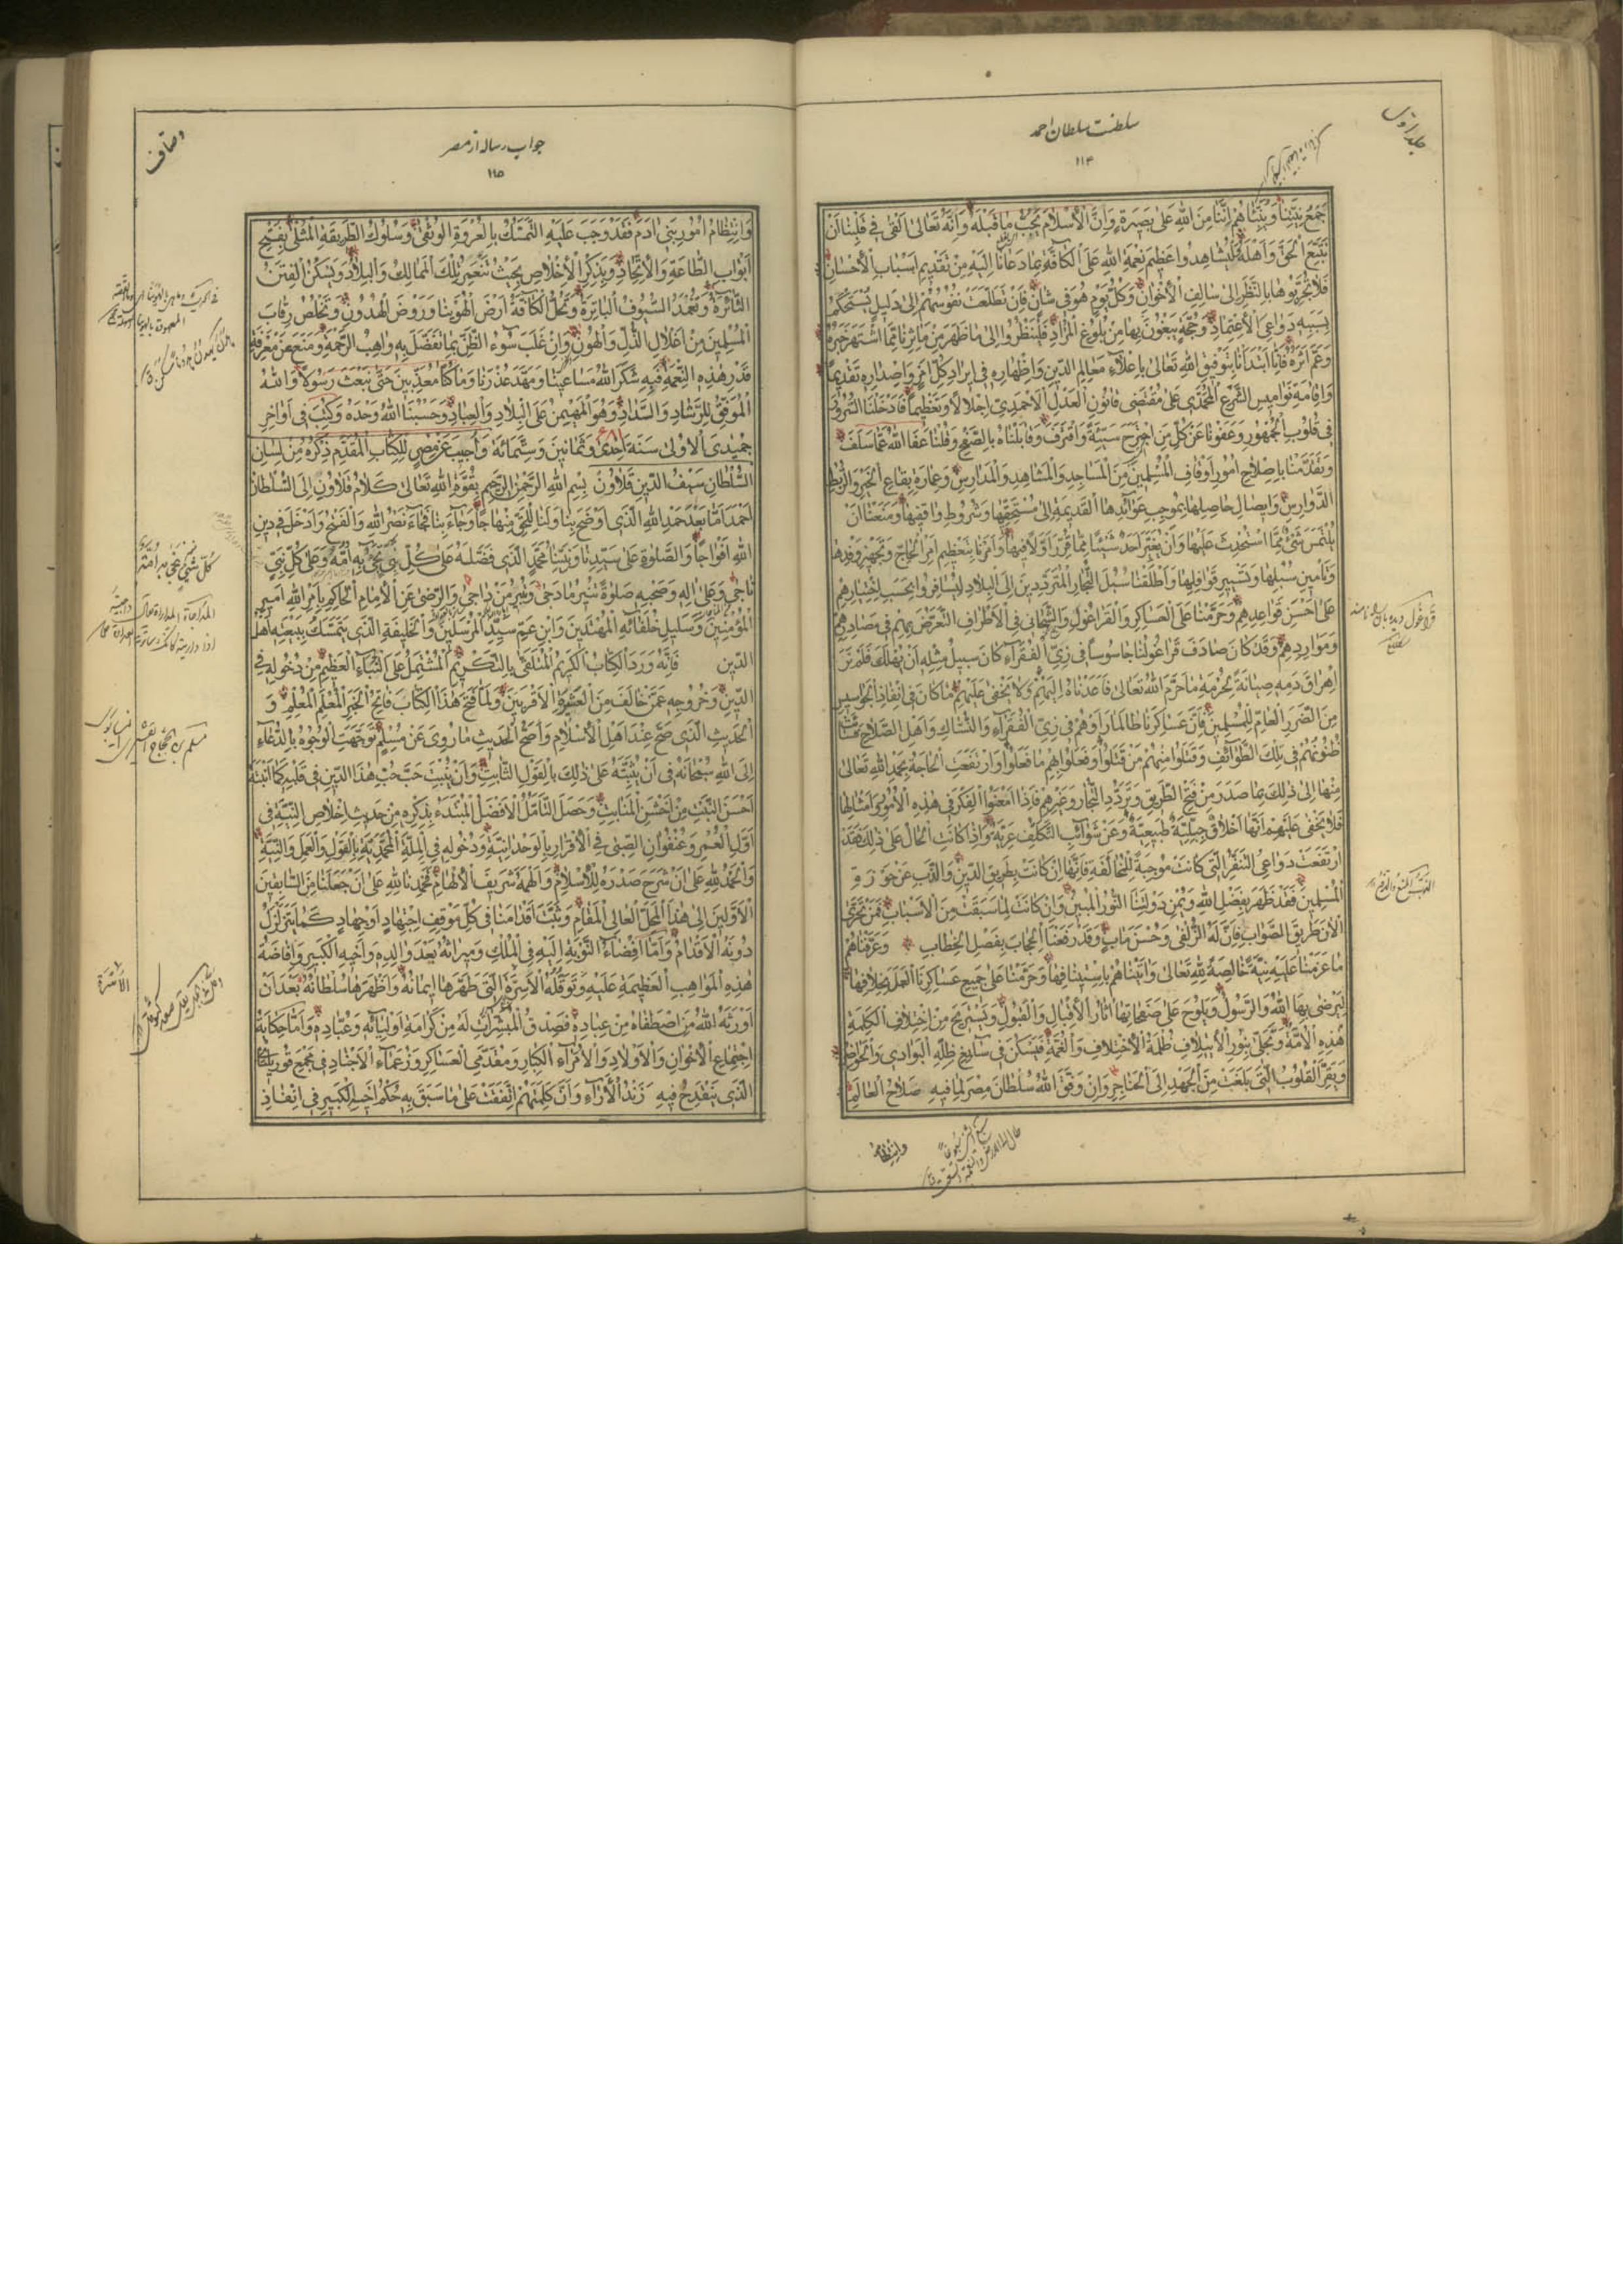 جلد اوّل
سلطنت سلطان احمد
۱۱۴
جَمَعَ بَيْنَنَا وَبَيْنَهُمْ اِنَّنَا مِنَ اللهِ عَلىٰ بَصيرَةٍ وَاِنَّ الْاِسْلامَ يَجُبُّ مَا قَبْلَهُ وَاَنَّهُ تَعالىٰ اَلْقىٰ في قَلْبِنَا اَنْ
نَتَّبِعَ الْحَقَّ وَاَهْلَهُ لِيُشاهِدُوا عَظيمَ نِعْمَةِ اللهِ عَلَى الْكافَّةِ بِمَا دَعانا اِلَيْهِ مِنْ تَقْديمِ اَسْبابِ الْاِحْسانِ
فَلا يَحْرِمُوها بِالنَّظَرِ اِلىٰ سالِفِ الْاَخْوانِ وَكُلُّ يَوْمٍ هُوَ في شَأْنٍ فَاِنْ تَطَلَّعَتْ نُفُوسُهُمْ اِلىٰ دَليلٍ يَسْتَحْكِمُ
بِسَبَبِهِ دَواعِي الْاِعْتِمادِ وَحُجَّةٍ يَبْغُونَ بِها مِنْ بُلُوغِ الْمُرادِ فَلْيَنْظُرُوا اِلىٰ ما ظَهَرَ مِنْ مَآثِرِنا مِمَّا اشْتَهَرَ خَبَرُهُ
وَعَمَّ اَثَرُهُ فَاِنَّا ابْتَدَأْنا بِتَوْفيقِ اللهِ تَعالىٰ بِاِعْلاءِ مَعالِمِ الدّينِ وَاِظْهارِهِ في ايرادِ كُلِّ اَمْرٍ وَاِصْدارِهِ تَقْديماً
وَاِقامَةِ نَواميسِ الشَّرْعِ الْمُحَمَّدي عَلىٰ مُقْتَضىٰ قانُونِ الْعَدْلِ الْاَحْمَدي اِجْلالاً وَتَعْظيماً فَادْخَلْنَا السُّرُورَ
في قُلُوبِ الْجُمْهُورِ وَعَفَوْنا عَنْ كُلِّ مَنِ اجْتَرَحَ سَيِّئَةً وَاقْتَرَفَ وَقابَلْناهُ بِالصَّفْحِ وَقُلْنا عَفَا اللهُ عَمَّا سَلَفَ
وَتَقَدَّمْنا بِاِصْلاحِ اُمُورِ اَوْقافِ الْمُسْلِمينَ مِنَ الْمَساجِدِ وَالْمَشاهِدِ وَالْمَدارِسِ وَعِمارَةِ بِقاعِ الْخَيْرِ وَالرُّبُطِ
الدَّوارِسِ وَايصالِ حاصِلِها بِمُوجَبِ عَوائِدِهَا الْقَديمَةِ اِلىٰ مُسْتَحِقّيها وَشُرُوطِ واقِفيها وَمَنَعْنا اَنْ
يُلْتَمَسَ شَيْءٌ مِمَّا اسْتُحْدِثَ عَلَيْها وَاَنْ يُغَيِّرَ اَحَدٌ شَيْئاً مِمَّا قُرِّرَ اَوَّلاً فيها وَاَمَرْنا بِتَعْظيمِ اَمْرِ الْحاجِّ وَتَجْهيزِ وَفْدِها
وَتَأْمينِ سُبُلِها وَتَسْييرِ قَوافِلِها وَاَطْلَقْنا سُبُلَ التُّجّارِ الْمُتَرَدِّدينَ اِلَى الْبِلادِ لِيُسافِرُوا بِحَسَبِ اِخْتِيارِهِمْ
عَلىٰ اَحْسَنِ قَواعِدِهِمْ وَحَرَّمْنا عَلَى الْعَساكِرِ وَالْقَراغُولِ وَالشَّحاني فِي الْاَطْرافِ التَّعَرُّضَ بِهِمْ في مَصادِرِهِمْ
وَمَوارِدِهِمْ وَقَدْ كانَ صادَفَ قَراغُولُنا جاسُوساً في زِيِّ الْفُقَراءِ كانَ سَبيلُ مِثْلِهِ اَنْ يُهْلَكَ فَلَمْ نَرَ
اِهْراقَ دَمِهِ صِيانَةً لِحُرْمَةِ ما حَرَّمَ اللهُ تَعالىٰ فَاَعَدْناهُ اِلَيْهِمْ وَلا يَخْفىٰ عَلَيْهِمْ ما كانَ في اِنْفاذِ الْجَواسيسِ
مِنَ الضَّرَرِ الْعامِّ لِلْمُسْلِمينَ فَاِنَّ عَساكِرَنا طالَما رَاَوْهُمْ في زِيِّ الْفُقَراءِ وَالنُّسّاكِ وَاَهْلِ الصَّلاحِ فَساءَتْ
ظُنُونُهُمْ في تِلْكَ الطَّوائِفِ وَقَتَلُوا مِنْهُمْ مَنْ قَتَلُوا وَفَعَلُوا بِهِمْ ما فَعَلُوا وَارْتَفَعَتِ الْحاجَةُ بِحَمْدِ اللهِ تَعالىٰ
مِنْها اِلىٰ ذٰلِكَ بِما صَدَرَ مِنْ فَتْحِ الطَّريقِ وَتَرَدُّدِ التُّجّارِ وَغَيْرِهِمْ فَاِذا اَمْعَنُوا الْفِكْرَ في هٰذِهِ الْاُمُورِ وَاَمْثالِها
فَلا يَخْفىٰ عَلَيْهِمْ اَنَّها اَخْلاقٌ جِبِلِّيَّةٌ طَبيعِيَّةٌ وَعَنْ شَوائِبِ التَّكَلُّفِ عَرِيَّةٌ وَاِذا كانَتِ الْحالُ عَلىٰ ذٰلِكَ فَقَدْ
ارْتَفَعَتْ دَواعِي التَّنَفُّرِ الَّتي كانَتْ مُوجِبَةً لِلْمُخالَفَةِ فَاِنَّها اِنْ كانَتْ بِطَريقِ الدّينِ وَالذَّبِّ عَنْ حَوْزَةِ
الْمُسْلِمينَ فَقَدْ ظَهَرَ بِفَضْلِ اللهِ وَيُمْنِ دَوْلَتِنَا النُّورُ الْمُبينُ وَاِنْ كانَتْ لِما سَبَقَتْ مِنَ الْاَسْبابِ فَمَنْ تَحَرّىٰ
الْاٰنَ طَريقَ الصَّوابِ فَاِنَّ لَهُ الزُّلْفىٰ وَحُسْنَ مَاٰبٍ وَقَدْ رَفَعْنَا الْحِجابَ بِفَصْلِ الْخِطابِ وَعَرَّفْناهُمْ
ما عَزَمْنا عَلَيْهِ بِنِيَّةٍ خالِصَةٍ لِلّٰهِ تَعالىٰ وَاَتَيْناهُمْ بِاسْتينافِها وَحَرَّمْنا عَلىٰ جَميعِ عَساكِرِنَا الْعَمَلَ بِخِلافِها
لِيَرْضىٰ بِهَا اللهُ وَالرَّسُولُ وَيَلُوحَ عَلىٰ صَفَحاتِها اٰثارُ الْاِقْبالِ وَالْقَبُولِ وَيَسْتَريحَ مِنْ اِخْتِلافِ الْكَلِمَةِ
هٰذِهِ الْاُمَّةُ وَتَجَلّىٰ بِنُورِ الْاِئْتِلافِ ظُلْمَةُ الْاِخْتِلافِ وَالْغُمَّةُ فَيَسْكُنَ في سابِغِ ظِلِّهِ الْبَوادي وَالْحَواضِرُ
وَيَقِرَّ الْقُلُوبُ الَّتي بَلَغَتْ مِنَ الْجَهْدِ اِلَى الْحَناجِرِ وَاِنْ وَفَّقَ اللهُ سُلْطانَ مِصْرَ لِما فيهِ صَلاحُ الْعالَمِ
وانتظام
وصاف
جواب رساله از مصر
۱۱۵
وَانْتِظامُ اُمُورِ بَني اٰدَمَ فَقَدْ وَجَبَ عَلَيْهِ التَّمَسُّكُ بِالْعُرْوَةِ الْوُثْقىٰ وَسُلُوكُ الطَّريقَةِ الْمُثْلىٰ بِفَتْحِ
اَبْوابِ الطّاعَةِ وَالْاِتِّحادِ وَبِذِكْرِ الْاِخْلاصِ بِحَيْثُ تَنْعَمِرُ تِلْكَ الْمَمالِكُ وَالْبِلادُ وَتَسْكُنُ الْفِتَنُ
الثّائِرَةُ وَتُغْمَدُ السُّيُوفُ الْباتِرَةُ وَتَحُلُّ الْكافَّةُ اَرْضَ الْهُوَيْنا وَرَوْضَ الْهُدُونِ وَتَخْلُصُ رِقابُ
الْمُسْلِمينَ مِنْ اَغْلالِ الذُّلِّ وَالْهُونِ وَاِنْ غَلَبَ سُوءُ الظَّنِّ بِما تَفَضَّلَ بِهِ واهِبُ الرَّحْمَةِ وَمَنَعَ عَنْ مَعْرِفَةِ
قَدْرِ هٰذِهِ النِّعْمَةِ فيهِ شَكَرَ اللهُ مَساعِيَنا وَمَهَّدَ عُذْرَنا وَما كُنَّا مُعَذِّبينَ حَتّىٰ نَبْعَثَ رَسُولاً وَاللهُ
الْمُوَفِّقُ لِلرَّشادِ وَالسَّدادِ وَهُوَ الْمُهَيْمِنُ عَلَى الْبِلادِ وَالْعِبادِ وَحَسْبُنَا اللهُ وَحْدَهُ وَكُتِبَ في اَواخِرِ
جُمَيْدَى الْاُولىٰ سَنَةَ اِحْدىٰ وَثَمانينَ وَسِتَّمائَةَ وَاُجيبَ عَنْ مِصْرٍ لِلْكِتابِ الْمُقَدَّمِ ذِكْرُهُ مِنْ لِسانِ
السُّلْطانِ سَيْفِ الدّينِ قَلاوُنَ بِسْمِ اللهِ الرَّحْمٰنِ الرَّحيمِ بِقُوَّةِ اللهِ تَعالىٰ كَلامُ قَلاوُنِ اِلَى السُّلْطانِ
اَحْمَدَ اَمّا بَعْدَ حَمْدِ اللهِ الَّذي اَوْضَحَ بِنا وَلَنا لِلْحَقِّ مِنْهاجاً وَجاءَ بِنا فَجاءَ نَصْرُ اللهِ وَالْفَتْحُ وَادْخَلَ في دينِ
اللهِ اَفْواجاً وَالصَّلوٰةِ عَلىٰ سَيِّدِنا وَنَبِيِّنا مُحَمَّدٍ الَّذي فَضَّلَهُ عَلىٰ كُلِّ نَبِيٍّ نَجّىٰ بِهِ اُمَّةً وَعَلىٰ كُلِّ نَبِيٍّ
ناجىٰ وَعَلىٰ اٰلِهِ وَصَحْبِهِ صَلوٰةً تُنيرُ ما دَجىٰ وَتُنيرُ مَنْ داجىٰ وَالرِّضىٰ عَنِ الْاِمامِ الْحاكِمِ بِاَمْرِ اللهِ اَميرِ
الْمُؤْمِنينَ وَسَليلِ خُلَفائِهِ الْمُهْتَدينَ وَابْنِ عَمِّ سَيِّدِ الْمُرْسَلينَ وَالْخَليفَةِ الَّذي يَتَمَسَّكُ بِبَيْعَتِهِ اَهْلُ
الدّينِ فَاِنَّهُ وَرَدَ الْكِتابُ الْكَريمُ الْمُتَلَقّىٰ بِالتَّكْريمِ الْمُشْتَمِلُ عَلَى النَّبَاءِ الْعَظيمِ مِنْ دُخُولِهِ في
الدّينِ وَخُرُوجِهِ عَمَّنْ خالَفَ مِنَ الْعَشيرَةِ الْاَقْرَبينَ وَلَمّا فُتِحَ هٰذَا الْكِتابُ فاتِحُ الْخَبَرِ الْمُعْلَمِ الْمُعْلِمِ وَ
الْحَديثِ الَّذي صَحَّ عِنْدَ اَهْلِ الْاِسْلامِ وَاَصَحُّ الْحَديثِ ما رُوِيَ عَنْ مُسْلِمٍ تَوَجَّهَتِ الْوُجُوهُ بِالدُّعاءِ
اِلَى اللهِ سُبْحانَهُ في اَنْ يُثَبِّتَهُ عَلىٰ ذٰلِكَ بِالْقَوْلِ الثّابِتِ وَاَنْ يُنْبِتَ حَبَّ حُبِّ هٰذَا الدّينِ في قَلْبِهِ كَما اَنْبَتَهُ
اَحْسَنَ النَّبْتِ مِنْ اَخْشَنِ الْمَنابِتِ وَحَصَلَ التَّأَمُّلُ الْاَفْضَلُ الْمُبْتَدَءُ بِذِكْرِهِ مِنْ حَديثِ اِخْلاصِ النِّيَّةِ في
اَوَّلِ الْعُمُرِ وَعُنْفُوانِ الصِّبىٰ فِي الْاِقْرارِ بِالْوَحْدانِيَّةِ وَدُخُولِهِ فِي الْمِلَّةِ الْمُحَمَّدِيَّةِ بِالْقَوْلِ وَالْعَمَلِ وَالنِّيَّةِ
وَالْحَمْدُ لِلّٰهِ عَلىٰ اَنْ شَرَحَ صَدْرَهُ لِلْاِسْلامِ وَاَلْهَمَهُ شَريفَ الْاِلْهامِ فَحَمِدْنَا اللهَ عَلىٰ اَنْ جَعَلَنا مِنَ السّابِقينَ
الْاَوَّلينَ اِلىٰ هٰذَا الْمَحَلِّ الْعالِي الْمَقامِ وَثَبَّتَ اَقْدامَنا في كُلِّ مَوْقِفِ اجْتِهادٍ اَوْ جِهادٍ كَما يَتَزَلْزَلُ
دُونَهُ الْاَقْدامُ وَاَمّا اِفْضاءُ النَّوْبَةِ اِلَيْهِ فِي الْمُلْكِ وَميراثُهُ بَعْدَ والِدِهِ وَاَخيهِ الْكَبيرِ وَاِفاضَةُ
هٰذِهِ الْمَواهِبِ الْعَظيمَةِ عَلَيْهِ وَتَوَقُّلُهُ الْاَسِرَّةَ الَّتي طَهَّرَها ايمانُهُ وَاَظْهَرَها سُلْطانُهُ بَعْدَ اَنْ
اَوْرَثَهُ اللهُ مَنِ اصْطَفاهُ مِنْ عِبادِهِ فَصَدَقَ الْمُبَشِّراتُ لَهُ مِنْ كَرامَةِ اَوْلِيائِهِ وَعُبّادِهِ وَاَمّا حِكايَةُ
اجْتِماعِ الْاِخْوانِ وَالْاَوْلادِ وَالْاُمَراءِ الْكِبارِ وَمُقَدَّمِي الْعَساكِرِ وَزُعَماءِ الْاَجْنادِ في مَجْمَعِ قُوريلتاي
الَّذي يَنْقَدِحُ فيهِ زَنْدُ الْاٰراءِ وَاَنَّ كَلِمَتَهُمْ اتَّفَقَتْ عَلىٰ ما سَبَقَ بِهِ حُكْمُ اَخيهِ الْكَبيرِ في اِنْفاذِ
الاسرّة